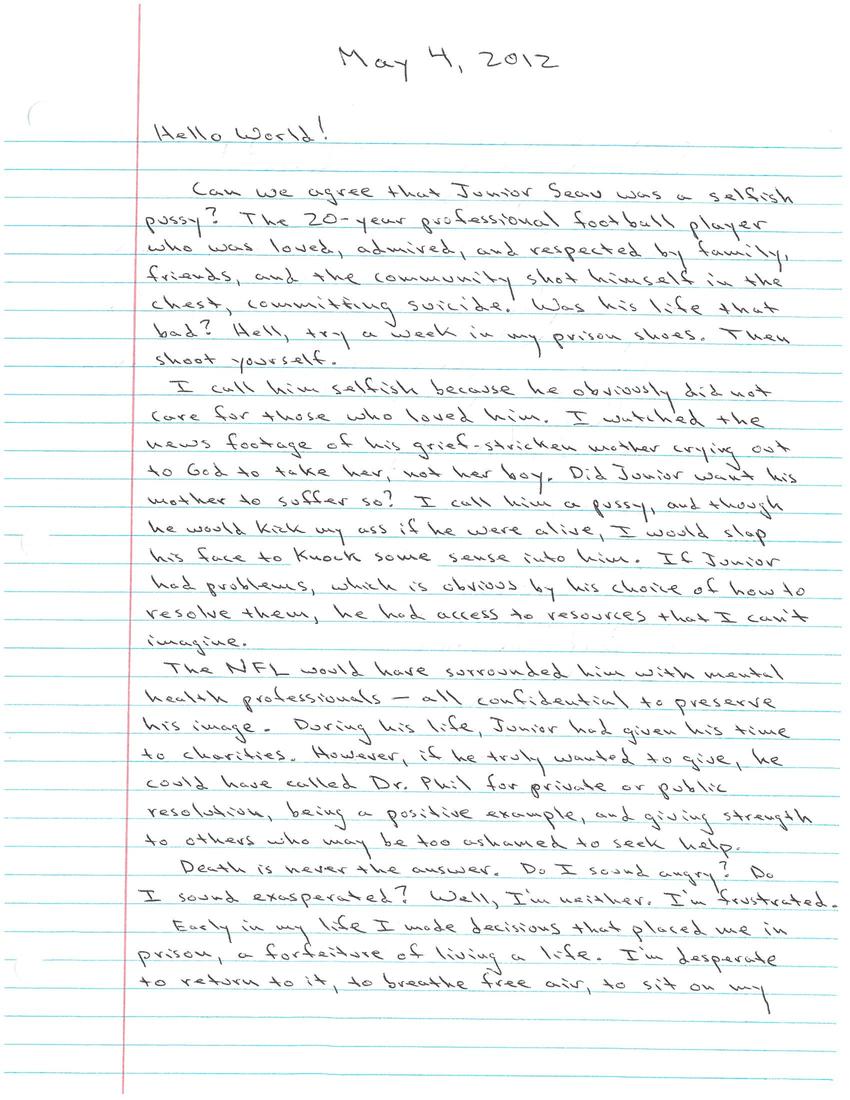 May 4, 2012
Hello World!
Can we agree that Junior Seau was a selfish
pussy? The 20-year professional football player
who was loved, admired, and respected by family,
friends, and the community shot himself in the
chest, committing suicide. Was his life that
bad? Hell, try a week in my prison shoes. Then
shoot yourself.
I call him selfish because he obviously did not
care for those who loved him. I watched the
news footage of his grief-stricken mother crying out
to God to take her, not her boy. Did Junior want his
mother to suffer so? I call him a pussy, and though
he would kick my ass if he were alive, I would slap
his face to knock some sense into him. If Junior
had problems, which is obvious by his choice of how to
resolve them, he had access to resources that I can't
imagine.
The NFL would have surrounded him with mental
health professionals — all confidential to preserve
his image. During his life, Junior had given his time
to charities. However, if he truly wanted to give, he
could have called Dr. Phil for private or public
resolution, being a positive example, and giving strength
to others who may be too ashamed to seek help.
Death is never the answer. Do I sound angry? Do
I sound exasperated? Well, I'm neither. I'm frustrated.
Early in my life I made decisions that placed me in
prison, a forfeiture of living a life. I'm desperate
to return to it, to breathe free air, to sit on my